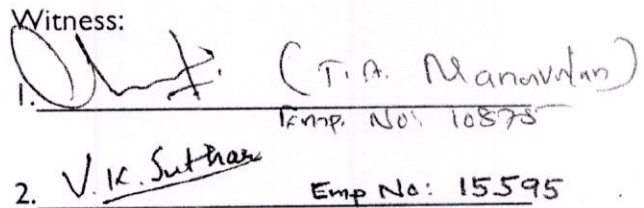 Witness:
1. (T.A. Manavalan)
Emp. No: 10875
2. V.K. Suthar Emp No: 15595